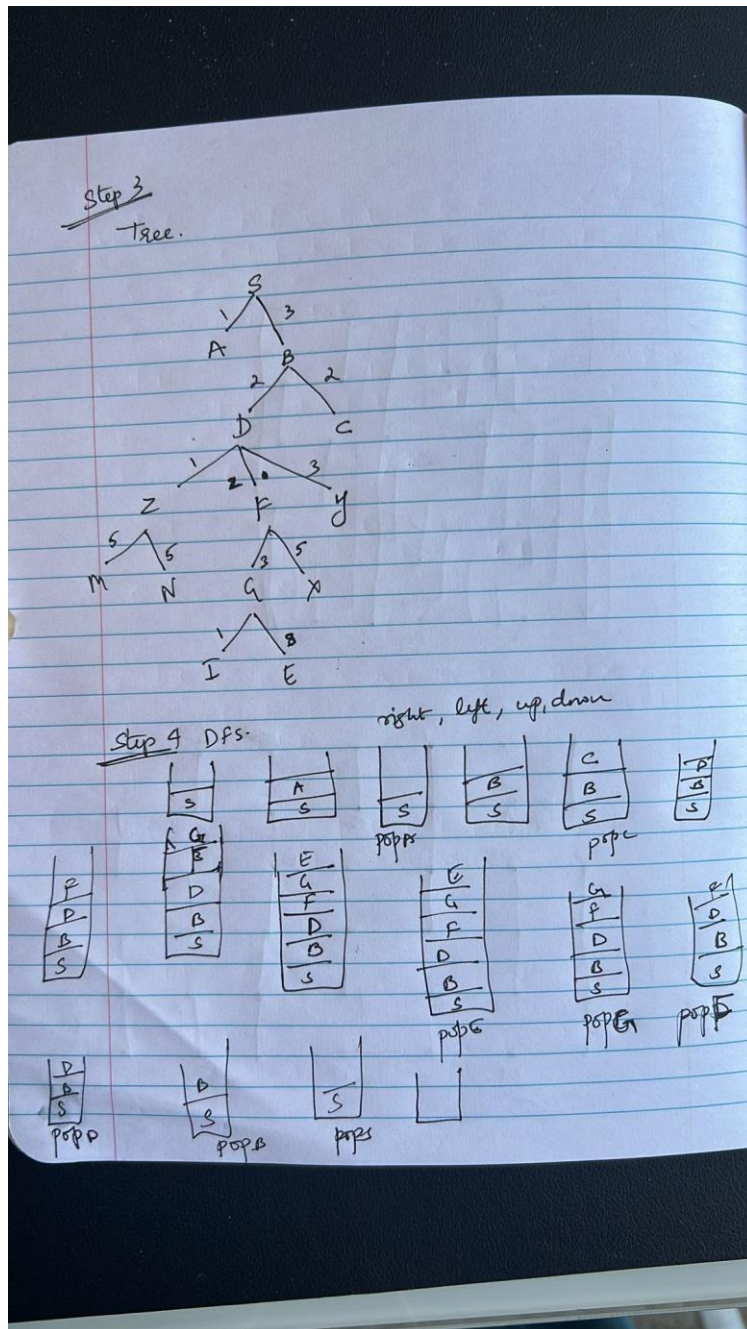 Step 3
Tree.
S
1 3
A B
2 2
D C
1 2 3
Z F Y
5 5 3 5
M N G X
1 8
I E
right, left, up, down
Step 4 DFS.
S
A
S
S
pop A
B
S
C
B
S
pop C
D
B
S
F
D
B
S
G
F
D
B
S
E
G
F
D
B
S
E
G
F
D
B
S
pop E
G
F
D
B
S
pop G
F
D
B
S
pop F
D
B
S
pop D
B
S
pop B
S
pop S